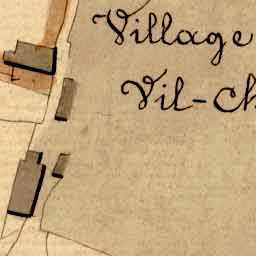 Village
Vil-Ch